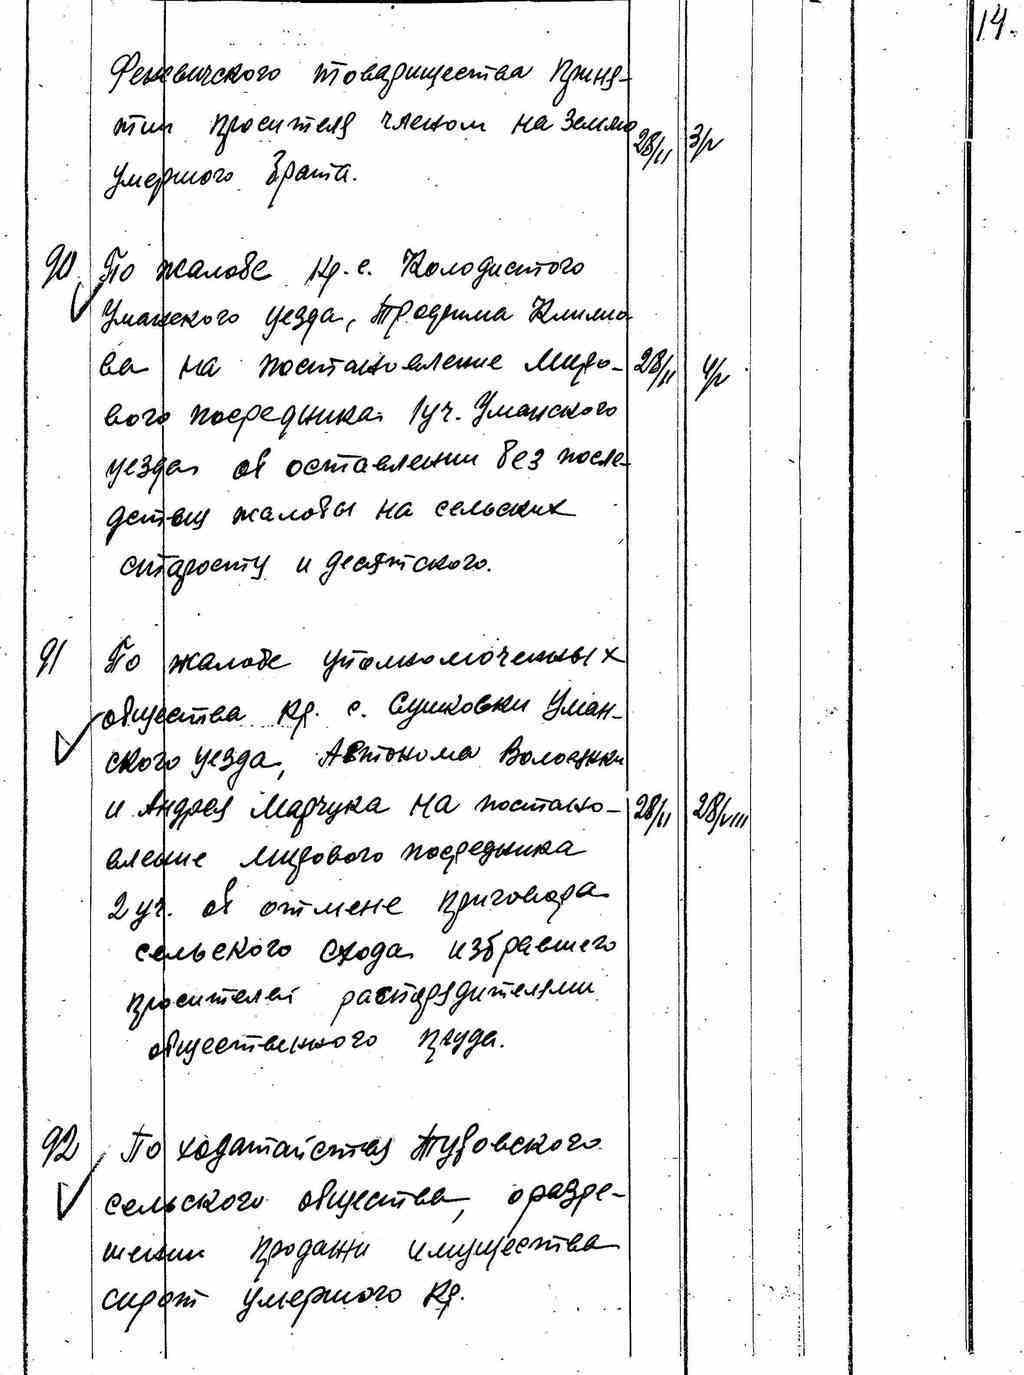 14.
Феневичского товарищества приня-
тии просителя членом на землю
умершого брата. 28/II 3/V
90 По жалобе кр. с. Колодистого
Уманского уезда, Трофима Климо-
ва на постановление миро- 28/II 4/V
вого посредника 1 уч. Уманского
уезда об оставлении без после-
дствий жалобы на сельских
старосту и десятского.
91 По жалобе уполномоченных
общества кр. с. Сушковки Уман-
ского уезда, Автонома
и Андрея Марчука на постано- 28/II 28/VIII
вление мирового посредника
2 уч. об отмене приговора
сельского схода избравшего
просителей распорядителями
общественного пруда.
92 По ходатайству
сельского общества, о разре-
шении продажи имущества
сирот умершого кр.